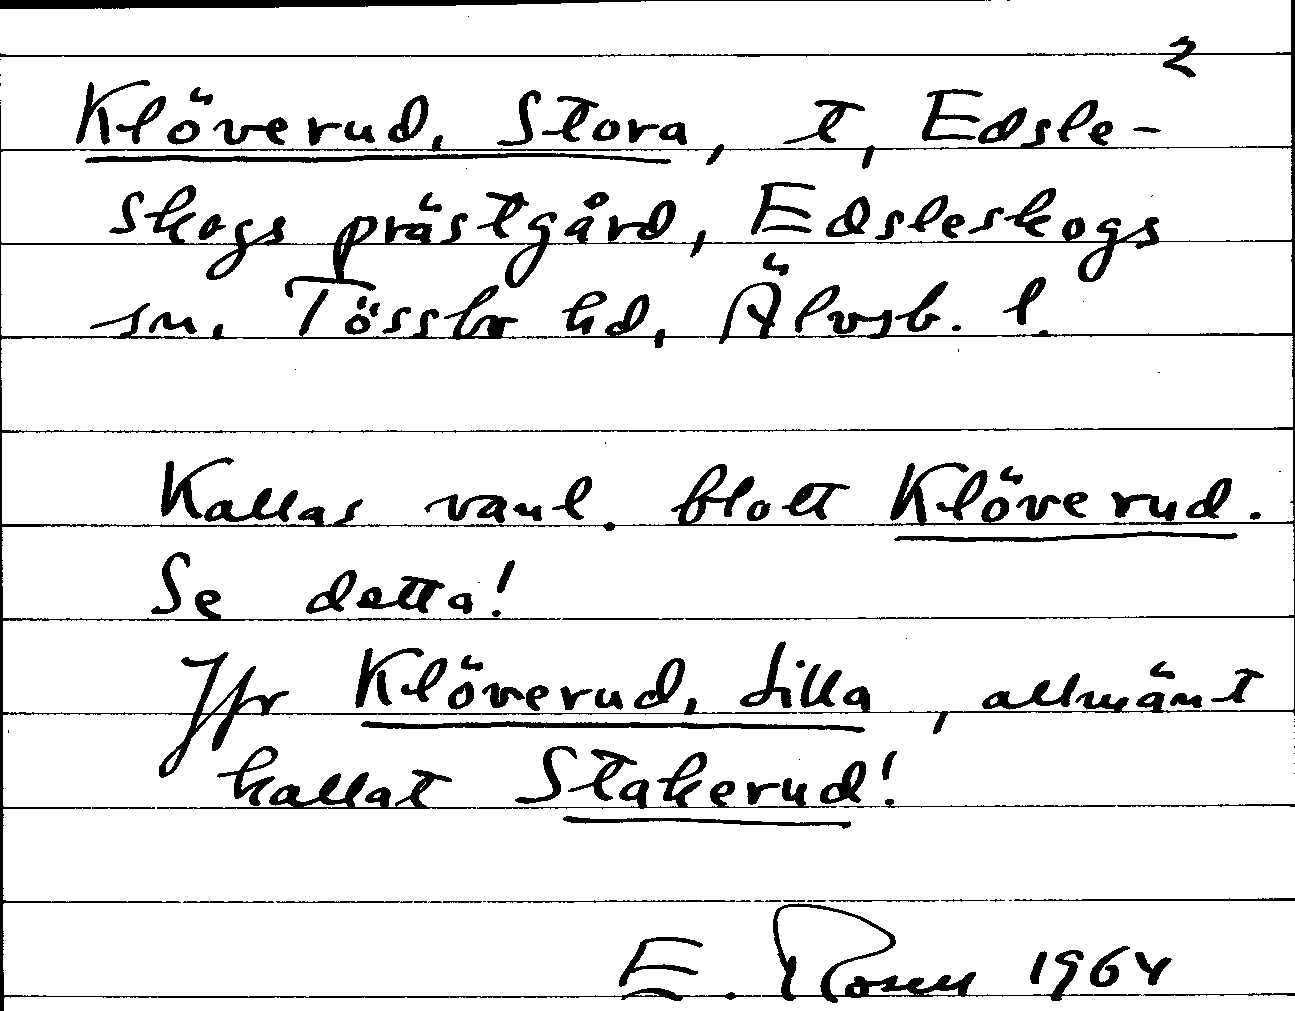 2
Klöverud, Stora, t, Edsle-
skogs prästgård, Edsleskogs
sn, Tössbo hd, Älvsb. l.
Kallas vanl. blott Klöverud.
Se detta!
Jfr Klöverud, Lilla, allmänt
kallat Stakerud!
E. Rosen 1964